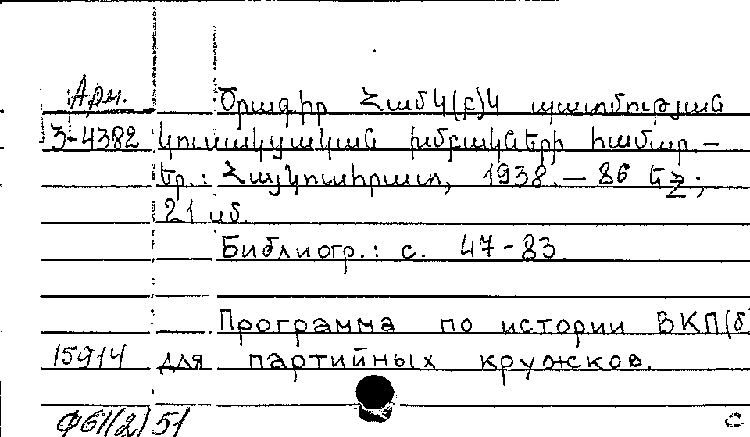 Арм. Ծրագիր ՀամԿ(բ)Կ պատմության
3-4382 կուսակցական խմբակների համար. –
Եր.: Հայկուսհրատ, 1938. – 86 էջ;
21 սմ.
Библиогр.: с. 47-83
Программа по истории ВКП(б)
15914 для партийных кружков.
Ф61(2)51 С